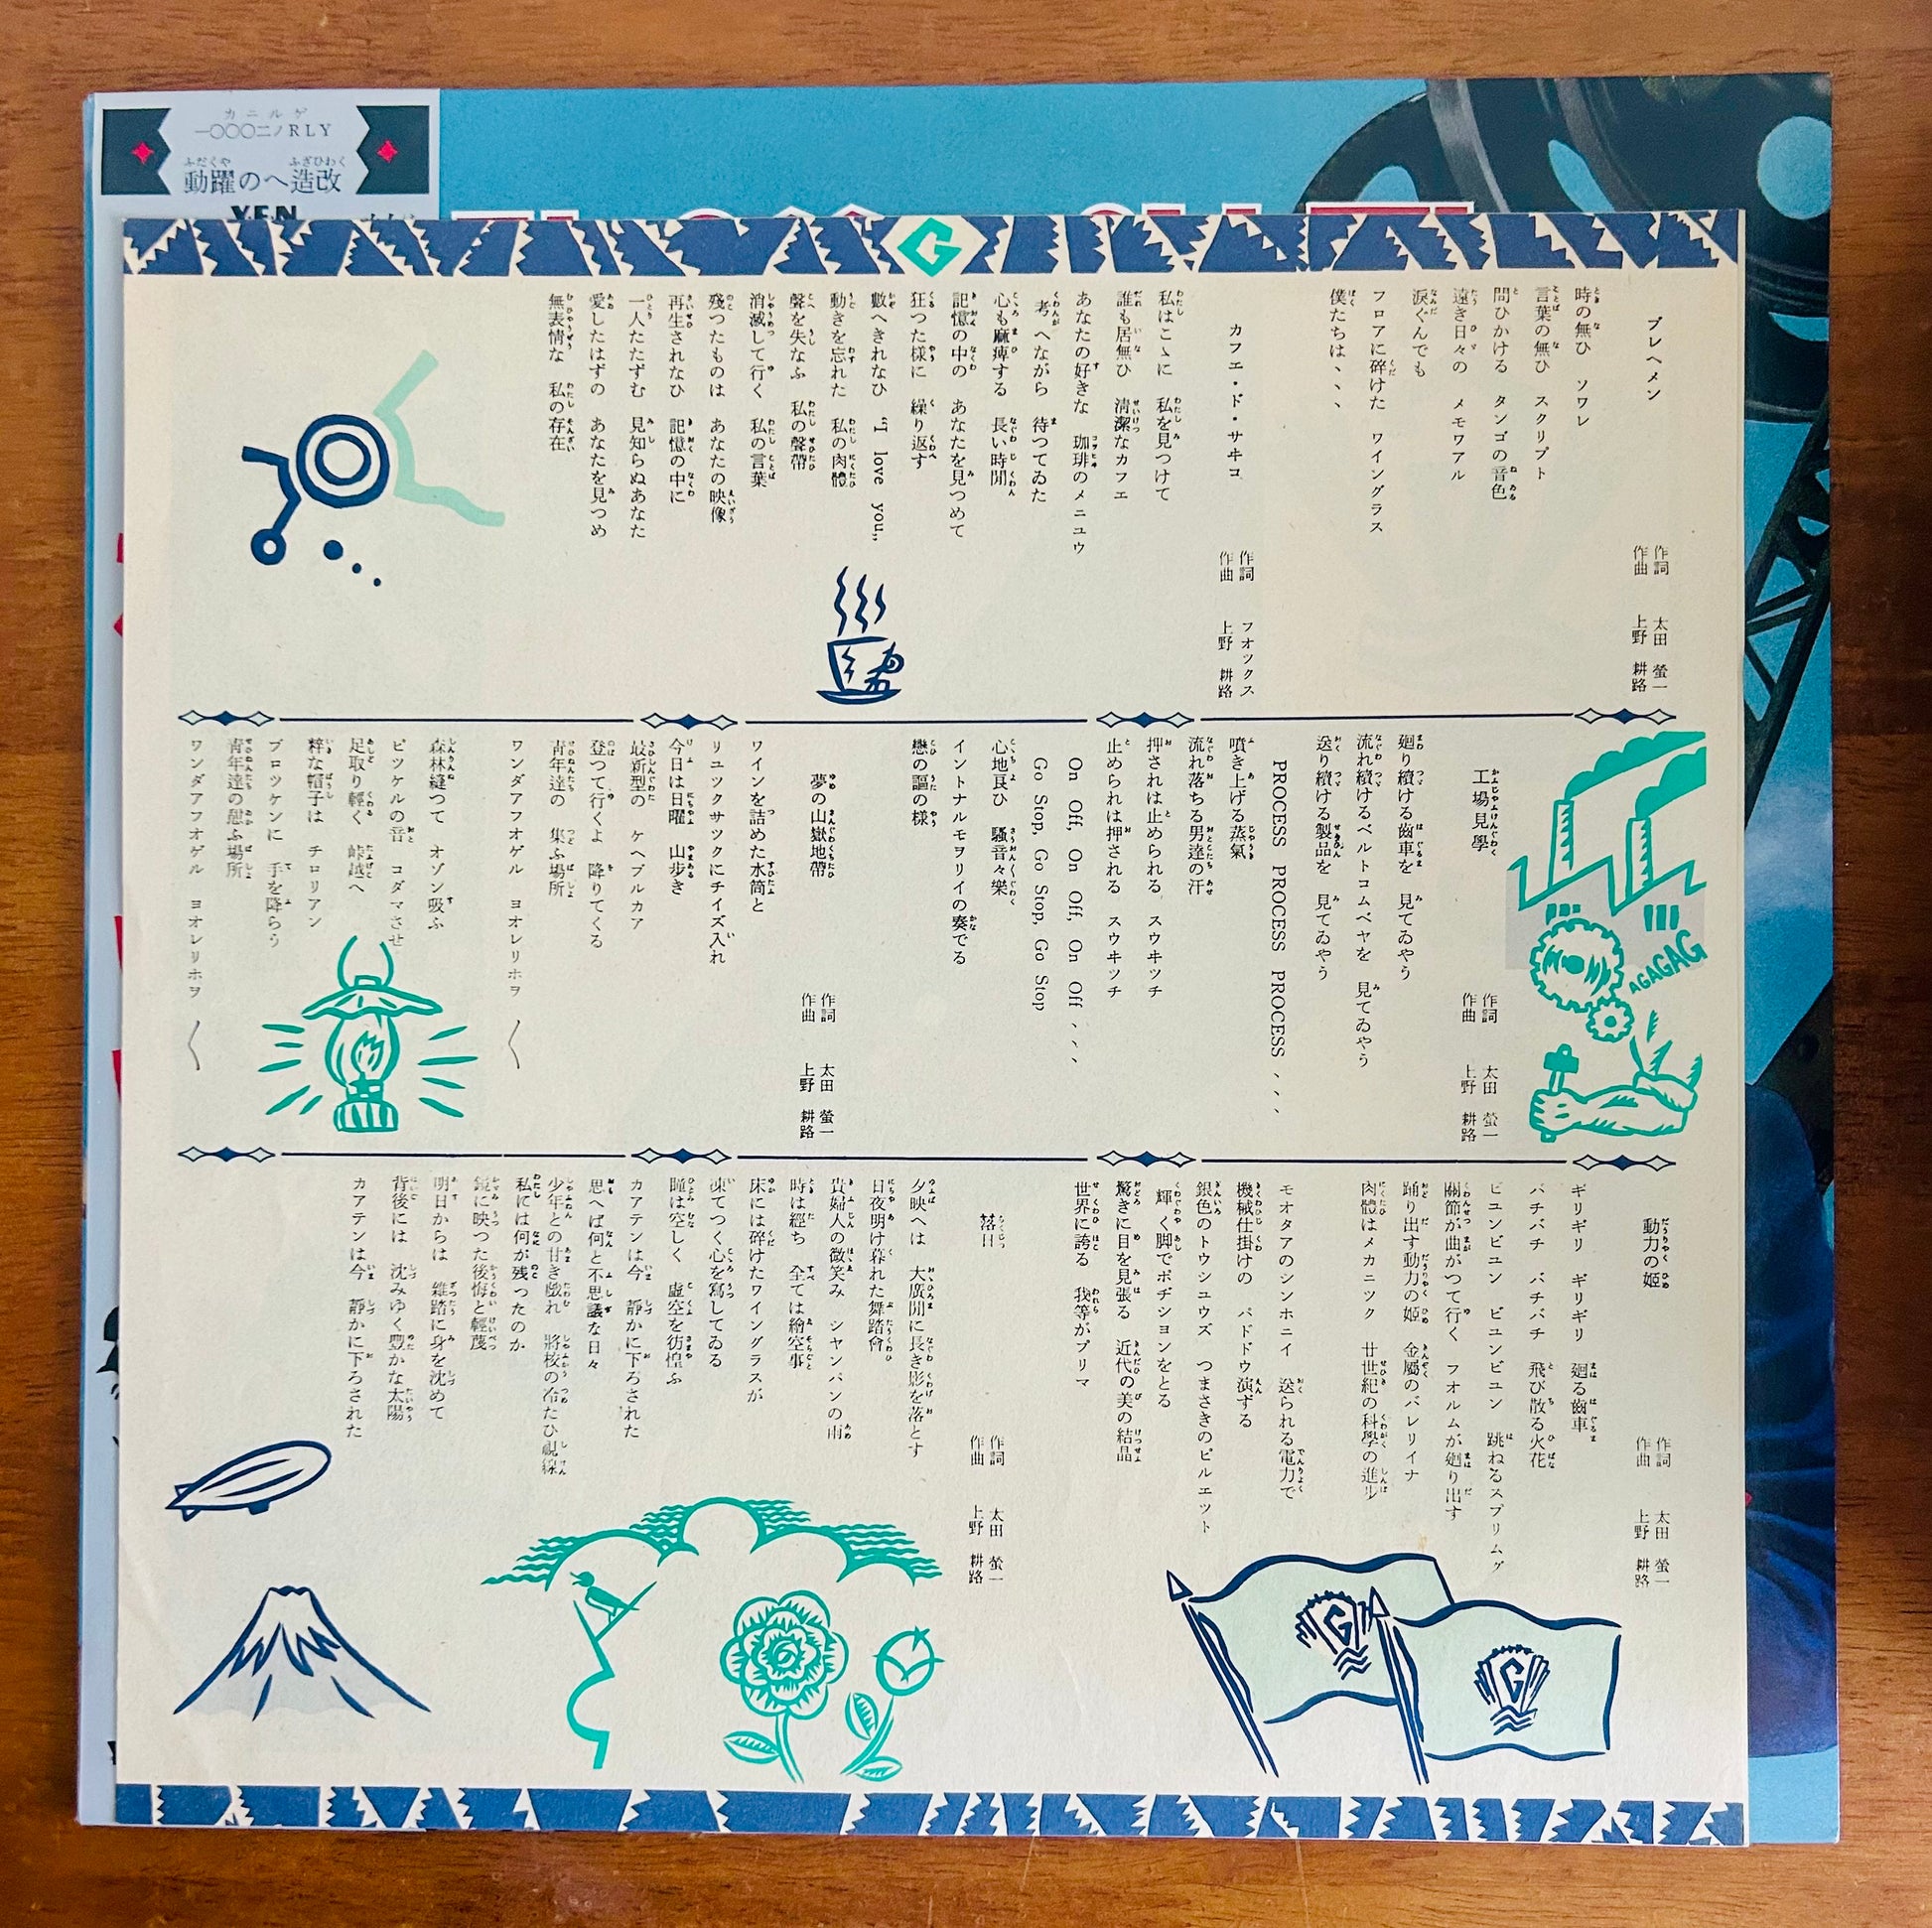 カニルゲ
一〇〇〇二ノRLY
動躍のへ造改
YEN
G
ブレヘメン
作詞 太田 螢一
作曲 上野 耕路
時の無ひ ソワレ
言葉の無ひ スクリプト
問ひかける タンゴの音色
遠き日々の メモワアル
涙ぐんでも
フロアに碎けた ワイングラス
僕たちは、、、
カフエ・ド・サヰコ
作詞 フオックス
作曲 上野 耕路
私はこゝに 私を見つけて
誰も居無ひ 淸潔なカフエ
あなたの好きな 珈琲のメニユウ
考へながら 待つてゐた
心も麻痺する 長い時間
記憶の中の あなたを見つめて
狂つた樣に 繰り返す
數へきれなひ “I love you„
動きを忘れた 私の肉體
聲を失なふ 私の聲帶
消滅して行く 私の言葉
殘つたものは あなたの映像
再生されなひ 記憶の中に
一人たたずむ 見知らぬあなた
愛したはずの あなたを見つめ
無表情な 私の存在
工場見學
作詞 太田 螢一
作曲 上野 耕路
廻り續ける齒車を 見てゐやう
流れ續けるベルトコムベヤを 見てゐやう
送り續ける製品を 見てゐやう
PROCESS PROCESS PROCESS 、、、
噴き上げる蒸氣
流れ落ちる男達の汗
押されは止められる スウヰツチ
止められは押される スウヰツチ
On Off, On Off, On Off 、、、
Go Stop, Go Stop, Go Stop
心地良ひ 騷音々樂
イントナルモヲリイの奏でる
戀の謳の樣
AGAGAG
夢の山嶽地帶
作詞 太田 螢一
作曲 上野 耕路
ワインを詰めた水筒と
リユツクサツクにチイズ入れ
今日は日曜 山歩き
最新型の ケヘブルカア
登つて行くよ 降りてくる
靑年達の 集ふ場所
ワンダアフオゲル ヨオレリホヲ 〱
森林縫つて オゾン吸ふ
ピツケルの音 コダマさせ
足取り輕く 峠越へ
粹な帽子は チロリアン
ブロツケンに 手を降らう
靑年達の憩ふ場所
ワンダアフオゲル ヨオレリホヲ 〱
動力の姬
作詞 太田 螢一
作曲 上野 耕路
ギリギリ ギリギリ 廻る齒車
バチバチ バチバチ 飛び散る火花
ビユンビユン ビユンビユン 跳ねるスプリムグ
關節が曲がつて行く フオルムが廻り出す
踊り出す動力の姬 金屬のバレリイナ
肉體はメカニツク 廿世紀の科學の進步
モオタアのシンホニイ 送られる電力で
機械仕掛けの パドドウ演ずる
銀色のトウシユウズ つまさきのピルエット
輝く脚でポヂシヨンをとる
驚きに目を見張る 近代の美の結晶
世界に誇る 我等がプリマ
落日
作詞 太田 螢一
作曲 上野 耕路
夕映へは 大廣間に長き影を落とす
日夜明け暮れた舞踏會
貴婦人の微笑み シヤンパンの雨
時は經ち 全ては繪空事
床には碎けたワイングラスが
凍てつく心を寫してゐる
瞳は空しく 虛空を彷徨ふ
カアテンは今 靜かに下ろされた
思へば何と不思議な日々
少年との甘き戲れ 將校の冷たひ視線
私には何が殘つたのか
鏡に映つた後悔と輕蔑
明日からは 雜踏に身を沈めて
背後には 沈みゆく豐かな太陽
カアテンは今 靜かに下ろされた
G
G